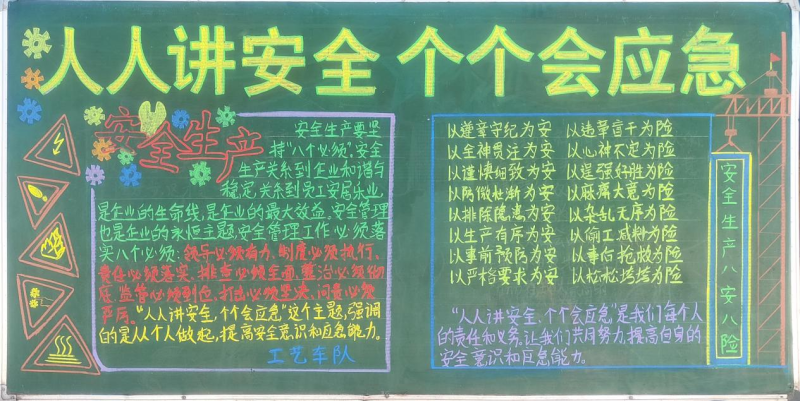 人人讲安全 个个会应急
安全生产
安全生产要坚
持“八个必须”，安全
生产关系到企业和谐与
稳定，关系到员工安居乐业，
是企业的生命线，是企业的最大效益，安全管理
也是企业的永恒主题，安全管理工作必须落
实八个必须：领导必须有力，制度必须执行、
责任必须落实，排查必须全面，整治必须彻
底，监管必须到位，打击必须坚决，问责必须
严厉。“人人讲安全，个个会应急”这个主题，强调
的是从个人做起，提高安全意识和应急能力。
工艺车队
以遵章守纪为安 以违章盲干为险
以全神贯注为安 以心神不定为险
以谨慎细致为安 以逞强好胜为险
以防微杜渐为安 以麻痹大意为险
以排除隐患为安 以杂乱无序为险
以生产有序为安 以偷工减料为险
以事前预防为安 以事后抢救为险
以严格要求为安 以松松垮垮为险
“人人讲安全，个个会应急”是我们每个人
的责任和义务。让我们共同努力，提高自身的
安全意识和应急能力。
安全生产八安八险